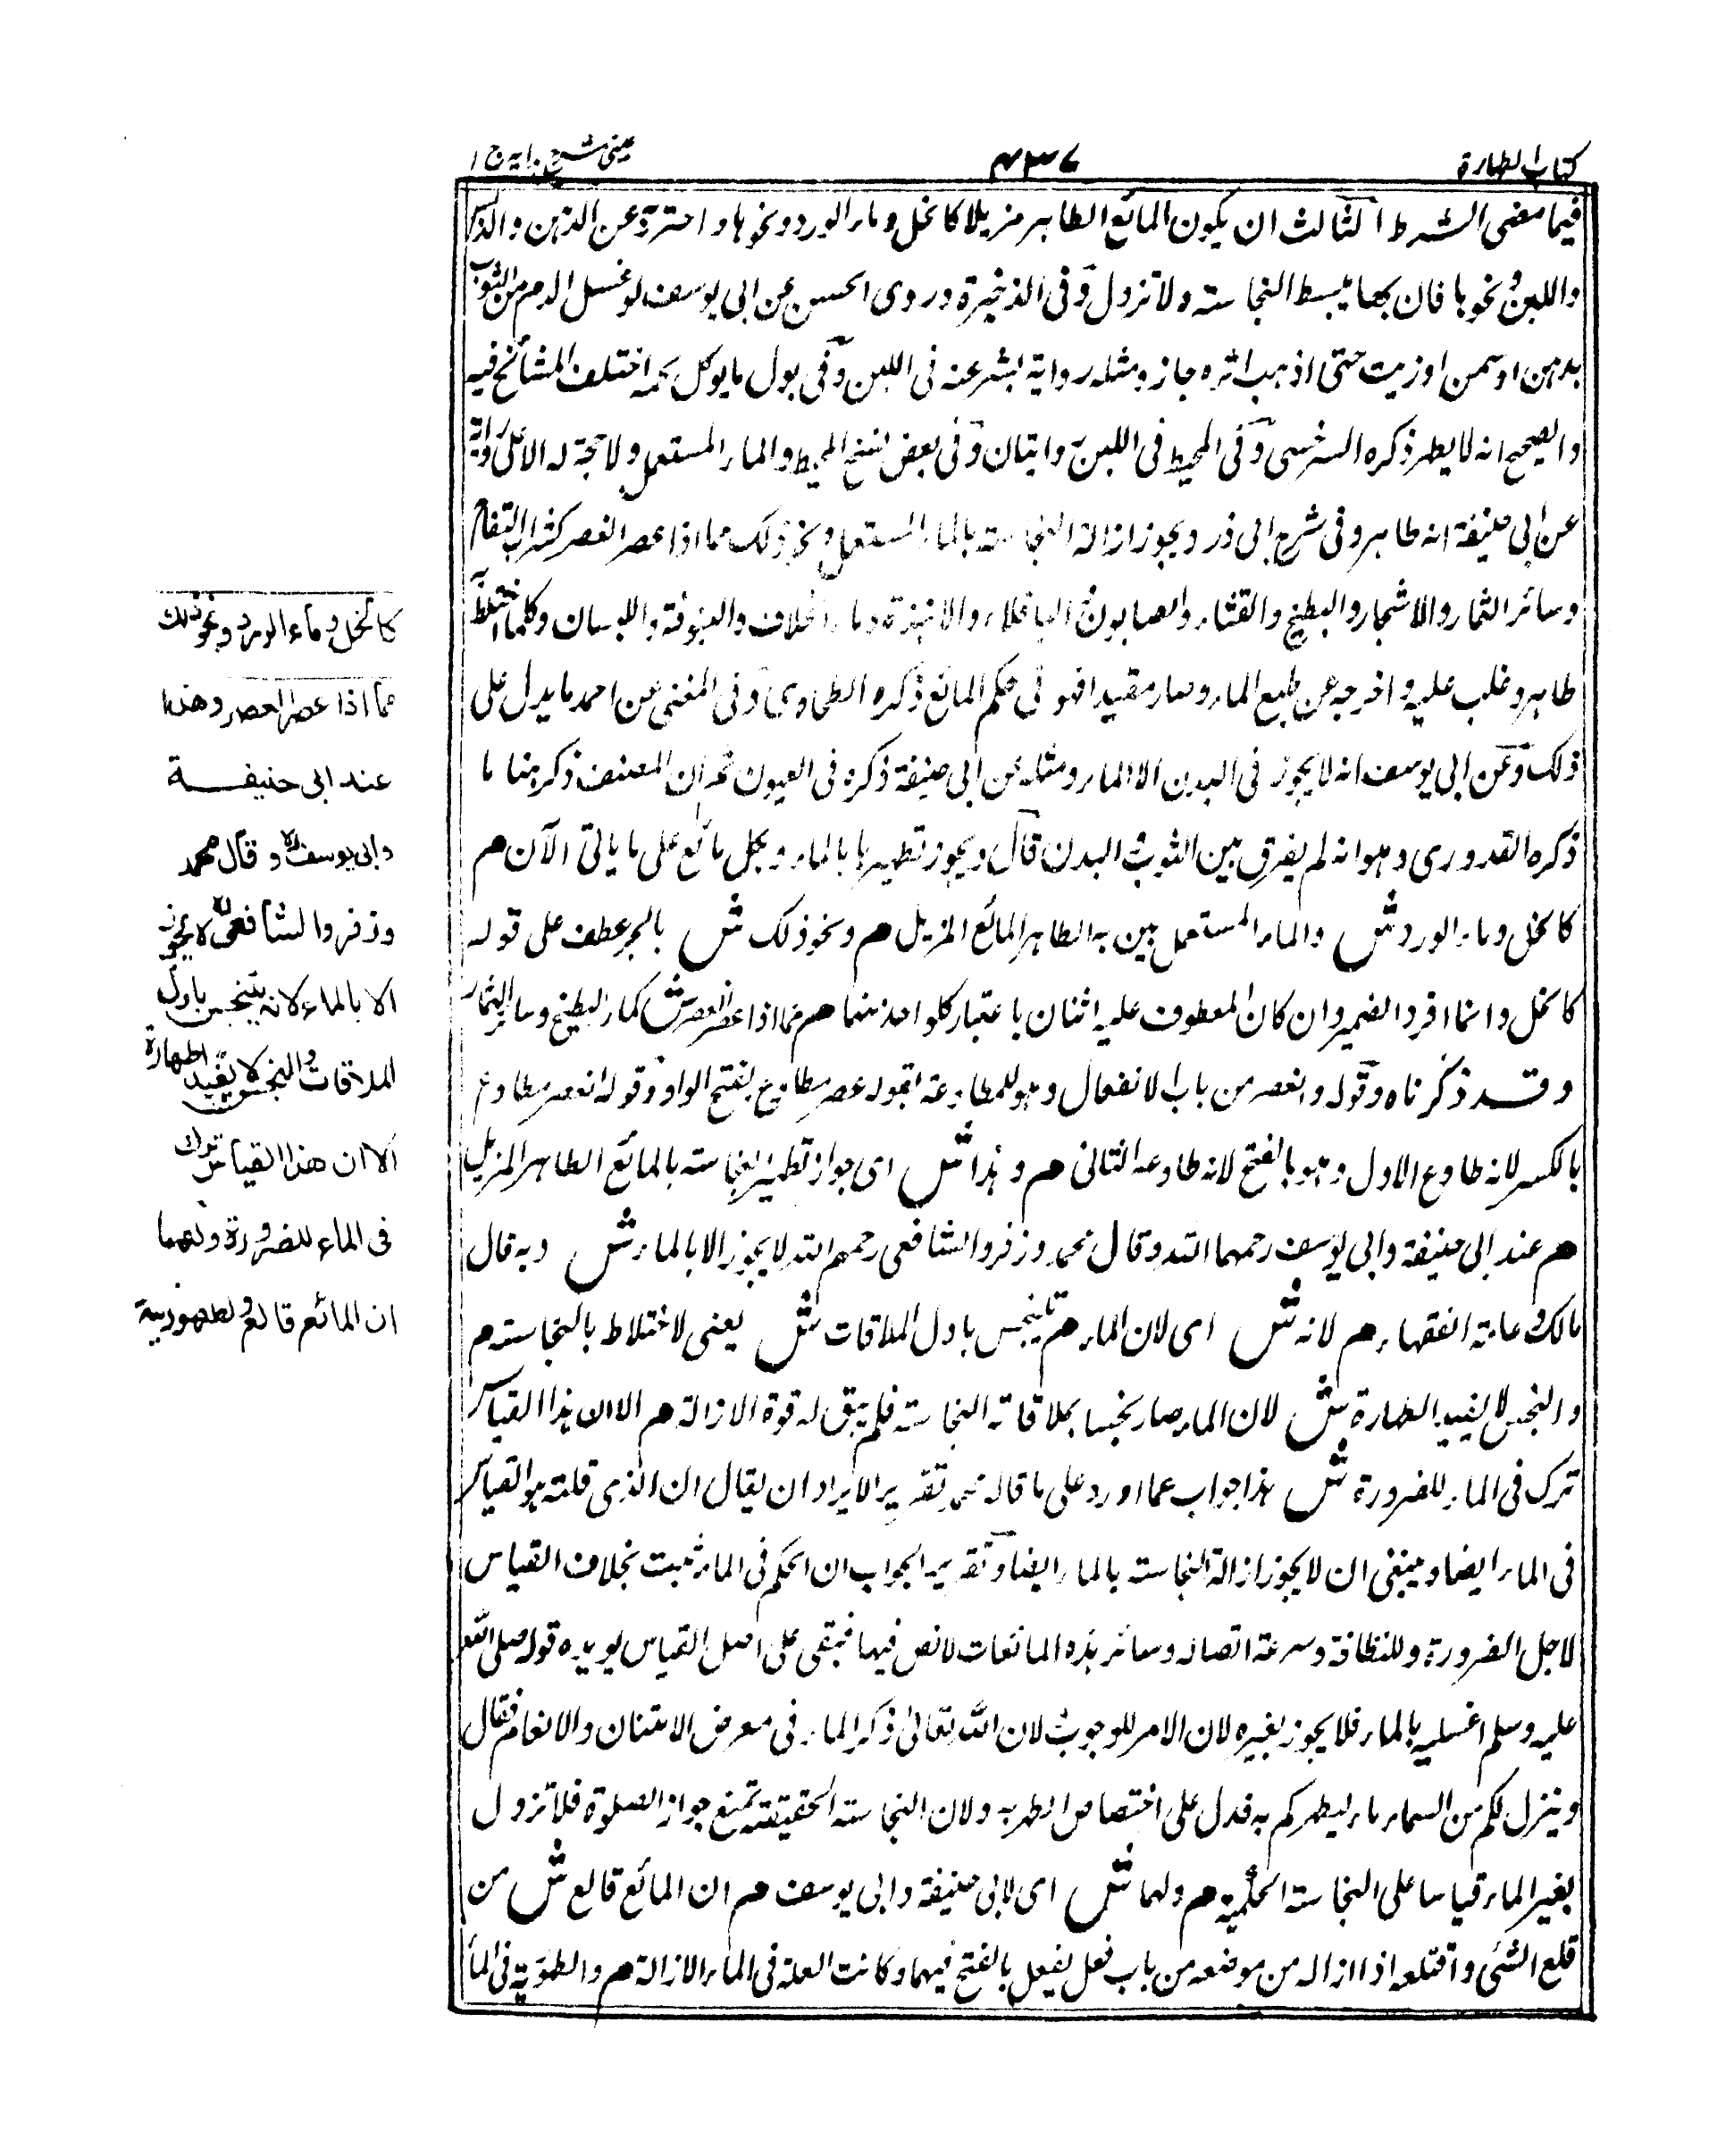 كتاب الطهارة
۴۳۷
عینی شرح ہدایہ ج ۱
فيما مضى الشرط الثالث ان يكون المائع الطاهر مزيلا كالخل وماء الورد ونحوها واحترز به عن الدهن والدبس
واللبن ونحوها فان بها ينبسط النجاسة ولا تزول وفى الذخيرة وروى الحسن عن ابى يوسف لو غسل الدم من الثوب
بدهن او سمن او زيت حتى اذهب اثره جاز ومثله رواية البشر عنه فى اللبن وفى بول ما يوكل لحمه اختلف المشائخ فيه
والصحيح انه لا يطهر ذكره السرخسى وفى المحيط فى اللبن روايتان وفى بعض نسخ المحيط والماء المستعمل ولا حجة له الا على رواية
عن ابى حنيفة انه طاهر وفى شرح ابى ذر ويجوز ازالة النجاسة بالماء المستعمل ونحو ذلك مما اذا عصر انعصر كشراب التفاح
وسائر الثمار والاشجار والبطيخ والقثاء والصابون الباقلاء والانبذة وماء الخلاف والينوفة واللوسان وكلما اختلط به
طاهر وغلب عليه واخرجه عن طبع الماء وصار مقيدا فهو فى حكم المائع ذكره الطحاوى وفى المغنى عن احمد ما يدل على
ذلك وعن ابى يوسف انه لا يجوز فى البدن الا الماء ومثله عن ابى حنيفة ذكره فى العيون ثم ان المصنف ذكر هنا ما
ذكره القدورى وهو انه لم يفرق بين الثوب والبدن قال ويجوز تطهيرها بالماء وبكل مائع على ما ياتى الآن هم
كالخل وماء الورد ش والماء المستعمل بين به الطاهر المائع المزيل هم ونحو ذلك ش بالجر عطف على قوله
كالخل وانما افرد الضمير وان كان المعطوف عليه اثنان باعتبار كل واحد منهما هم مما اذا عصر انعصر ش كماء البطيخ وسائر الثمار
وقد ذكرناه وقوله وانعصر من باب الانفعال وهو للمطاوعة بقوله عصر مطاوع بفتح الواو وقوله انعصر مطاوع
بالكسر لانه طاوع الاول وهو بالفتح لانه طاوعه الثانى هم وهذا ش اى جواز تطهير النجاسة بالمائع الطاهر المزيل
هم عند ابى حنيفة وابى يوسف رحمهما الله وقال محمد وزفر والشافعى رحمهم الله لا يجوز الا بالماء ش وبه قال
مالك وعامة الفقهاء هم لانه ش اى لان الماء هم يتنجس باول الملاقات ش يعنى لاختلاط بالنجاسة هم
والنجس لا يفيد الطهارة ش لان الماء صار نجسا بملاقاته النجاسة فلم يبق له قوة الازالة هم الا ان هذا القياس
ترك فى الماء للضرورة ش هذا جواب عما اورد على ما قاله محمد تقرير الايراد ان يقال ان الذى قلته هو القياس
فى الماء ايضا وينبغى ان لا يجوز ازالة النجاسة بالماء ايضا وتقرير الجواب ان الحكم فى الماء ثبت بخلاف القياس
لاجل الضرورة وللنظافة وسرعة اتصاله وسائر هذه المائعات لا نص فيها فبقى على اصل القياس يويده قوله صلى الله
عليه وسلم اغسليه بالماء فلا يجوز بغيره لان الامر للوجوب لان الله تعالى ذكر الماء فى معرض الامتنان والانعام فقال
وينزل لكم من السماء ماء ليطهركم به فدل على اختصاص الطهر به ولان النجاسة الحقيقة تمنع جواز الصلوة فلا تزول
بغير الماء قياسا على النجاسة الحكمية هم ولهما ش اى لابى حنيفة وابى يوسف هم ان المائع قالع ش من
قلع الشئ واقتلعه اذا ازاله من موضعه من باب فعل يفعل بالفتح فيهما وكانت العلة فى الماء الازالة هم والطهورية فى الماء
كالخل وماء الورد ونحو ذلك
مما اذا عصر انعصر وهذا
عند ابى حنيفة
وابى يوسف رح وقال محمد
وزفر والشافعى رح لا يجوز
الا بالماء لانه يتنجس باول
الملاقات والنجس لا يفيد الطهارة
الا ان هذا القياس ترك
فى الماء للضرورة ولهما
ان المائع قالع والطهورية